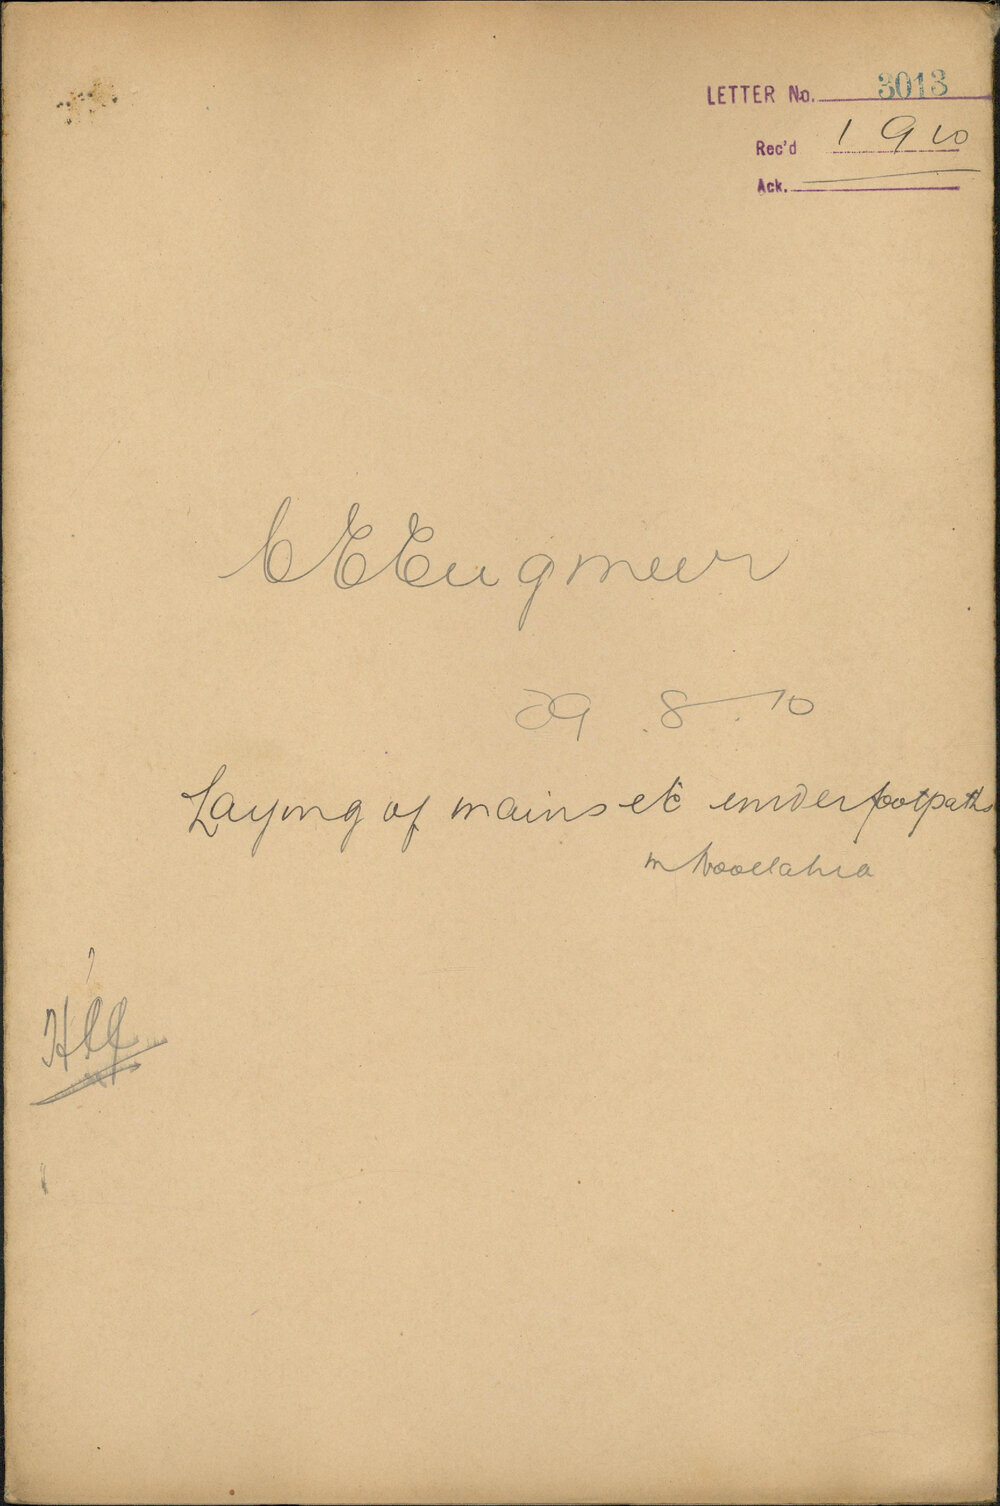 LETTER No. 3013
Rec'd 1 9 10
Ack.
C E Engineer
29.8.10
Laying of mains etc under footpaths
in Woollahra